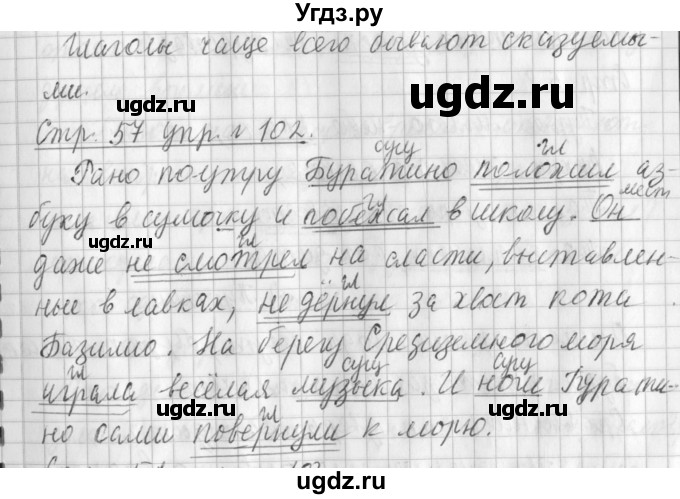 Угдз.ру
Глаголы чаще всего бывают сказуемы-
ми.
ugdz.ru ugdz.ru
Стр. 57 упр. № 102.
сущ гл
Рано поутру Буратино положил аз-
гл мест
буку в сумочку и побежал в школу. Он
гл
даже не смотрел на сласти, выставлен-
ugdz.ru ugdz.ru
гл
ные в лавках, не дёрнул за хвост кота
Базилио. На берегу Средиземного моря
гл сущ сущ
играла весёлая музыка. И ноги Бурати-
ugdz.ru ugdz.ru
гл
но сами повернули к морю.
ugdz.ru